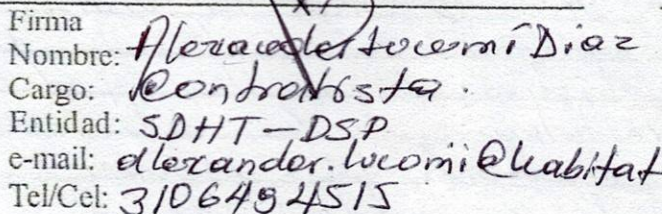 Firma
Nombre: Alexander Lucomí Diaz
Cargo: Contratista.
Entidad: SDHT-DSP
e-mail: alexander.lucomi@habitat
Tel/Cel: 3106494515